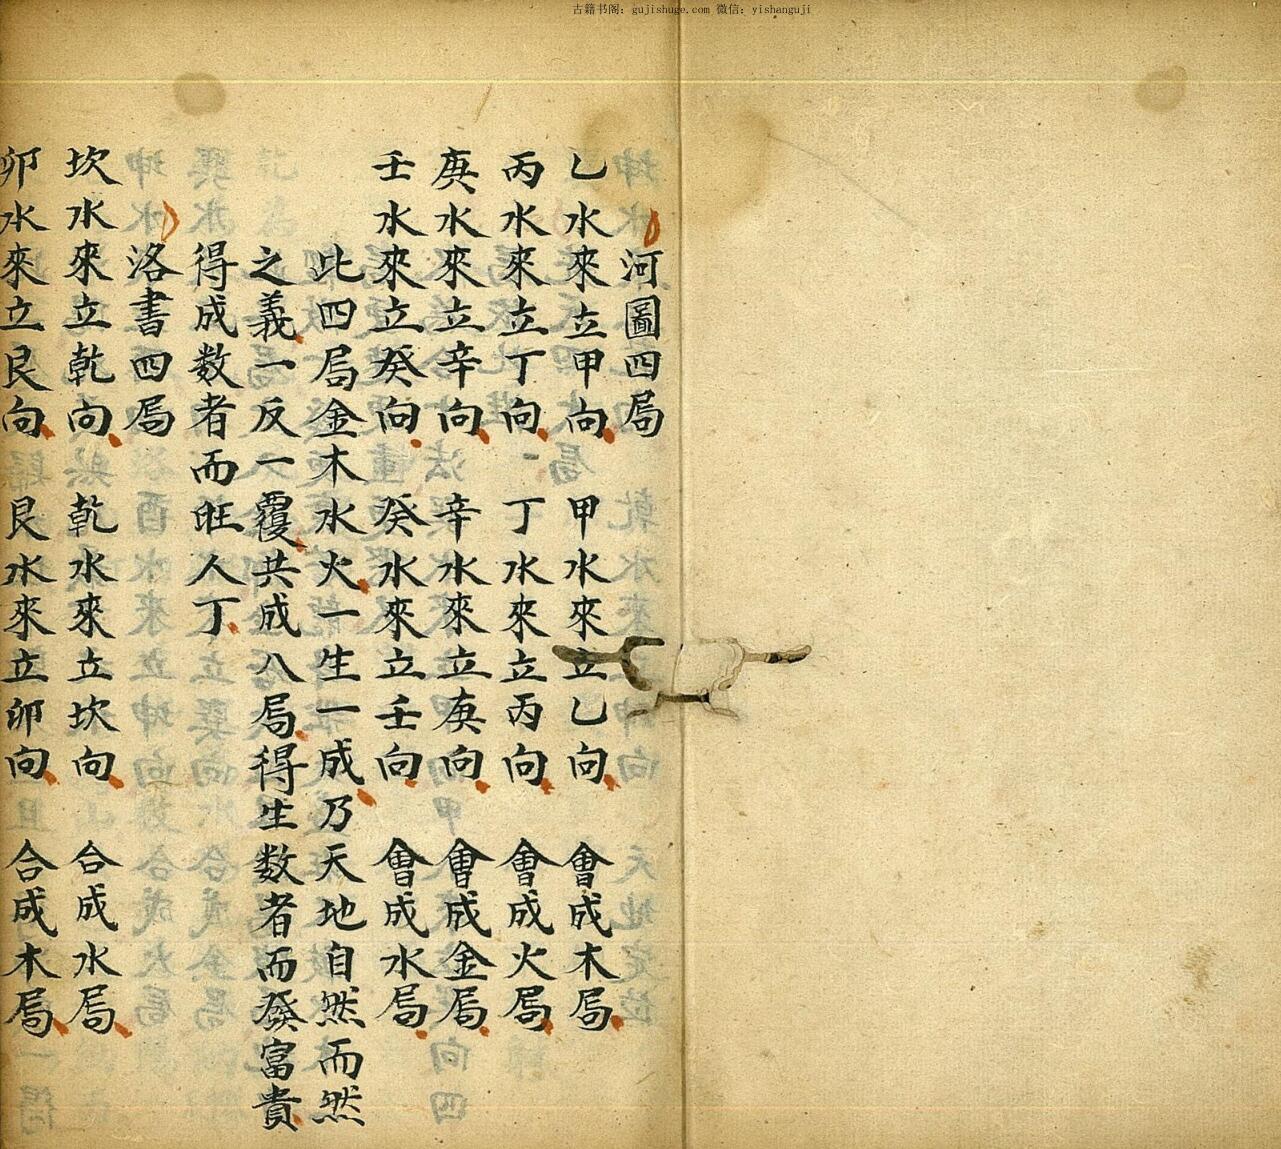 古籍书阁：gujishuge.com 微信：yishanguji
河圖四局
乙水來立甲向 甲水來立乙向 會成木局
丙水來立丁向 丁水來立丙向 會成火局
庚水來立辛向 辛水來立庚向 會成金局
壬水來立癸向 癸水來立壬向 會成水局
此四局金木水火一生一成乃天地自然而然
之義一反一覆共成八局得生数者而發富貴
得成数者而旺人丁
洛書四局
坎水來立乾向 乾水來立坎向 合成水局
卯水來立艮向 艮水來立卯向 合成木局